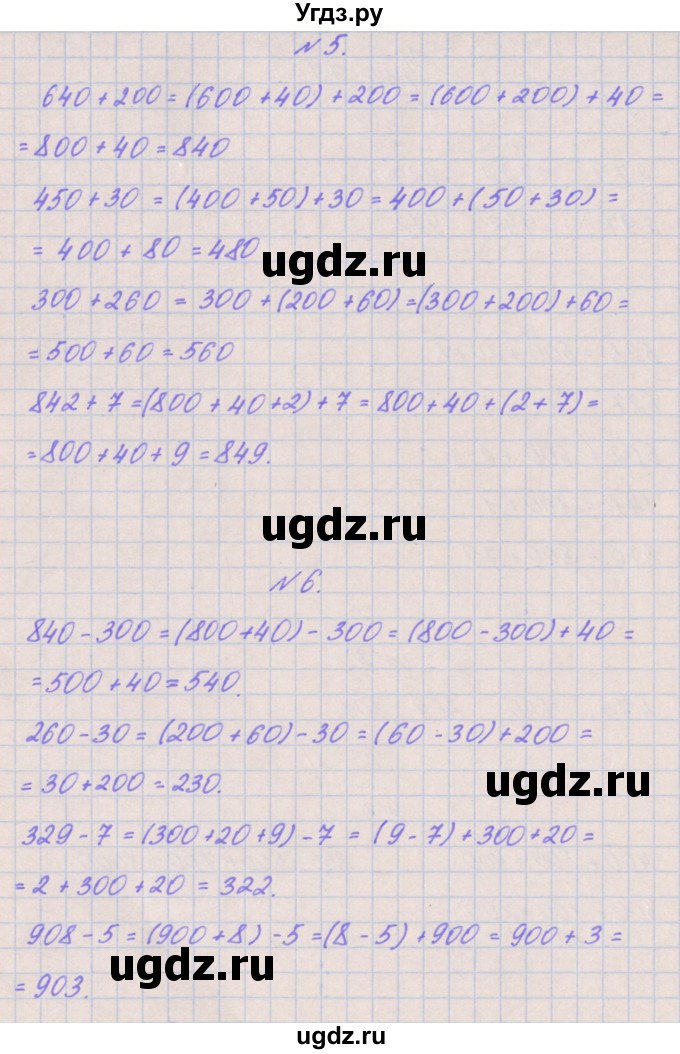 Угдз.ру
N 5.
640 + 200 = (600 + 40) + 200 = (600 + 200) + 40 =
= 800 + 40 = 840
450 + 30 = (400 + 50) + 30 = 400 + (50 + 30) =
= 400 + 80 = 480
ugdz.ru
300 + 260 = 300 + (200 + 60) = (300 + 200) + 60 =
= 500 + 60 = 560
842 + 7 = (800 + 40 + 2) + 7 = 800 + 40 + (2 + 7) =
= 800 + 40 + 9 = 849.
ugdz.ru
N 6.
840 - 300 = (800 + 40) - 300 = (800 - 300) + 40 =
= 500 + 40 = 540.
260 - 30 = (200 + 60) - 30 = (60 - 30) + 200 =
= 30 + 200 = 230.
ugdz.ru
329 - 7 = (300 + 20 + 9) - 7 = (9 - 7) + 300 + 20 =
= 2 + 300 + 20 = 322.
908 - 5 = (900 + 8) - 5 = (8 - 5) + 900 = 900 + 3 =
ugdz.ru
= 903.
ugdz.ru